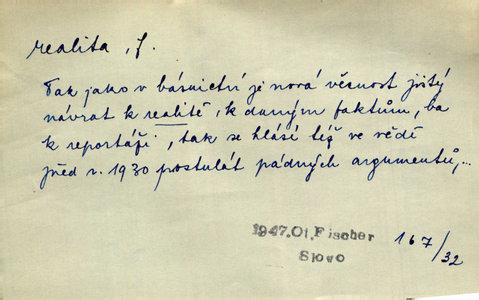 realita, f.
Tak jako v básnictví je nová věcnost jistý
návrat k realitě, k daným faktům, ba
k reportáži, tak se hlásí též ve vědě
před r. 1930 postulát pádných argumentů,...
1947.Ot.Fischer
Slovo
167/32